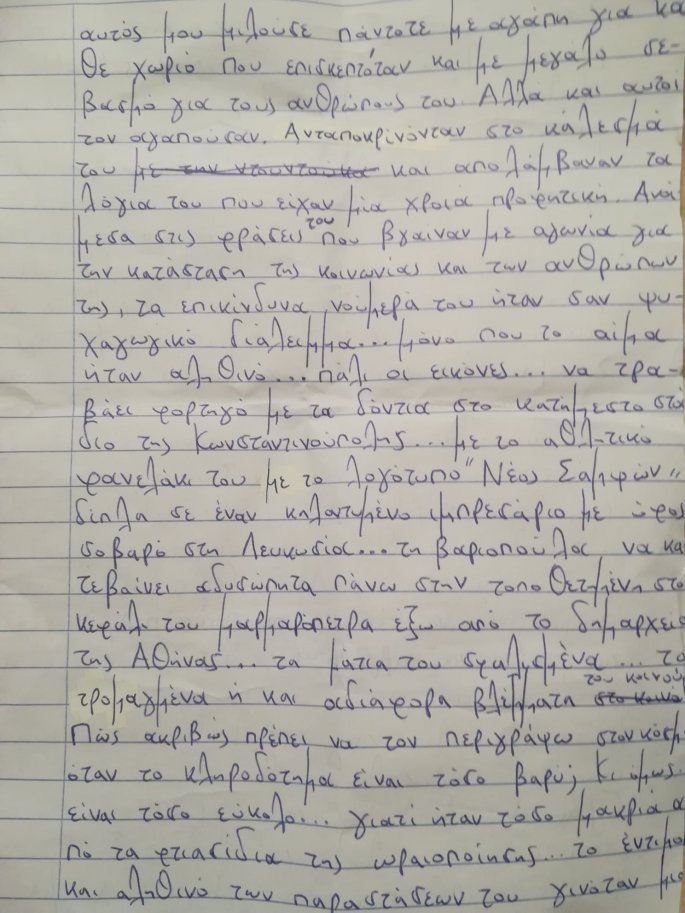 αυτός μου μιλούσε πάντοτε με αγάπη για κα
θε χωριό που επισκεπτόταν και με μεγάλο σε-
βασμό για τους ανθρώπους του. Αλλά και αυτοί
τον αγαπούσαν. Ανταποκρινόνταν στο κάλεσμά
του με την ντουντούκα και απολάμβαναν τα
λόγια του που είχαν μία χροιά προφητική. Ανά
μεσα στις φράσεις του που βγαιναν με αγωνία για
την κατάσταση της κοινωνίας και των ανθρώπων
της, τα επικίνδυνα νούμερά του ήταν σαν ψυ-
χαγωγικό διάλειμμα... μόνο που το αίμα
ήταν αληθινό... πάλι οι εικόνες... να τρα-
βάει φορτηγό με τα δόντια στο κατάμεστο στά
διο της Κωνσταντινούπολης... με το αθλητικό
φανελάκι του με το λογότυπο "Νέος Σαμψών"
δίπλα σε έναν κηλαντημένο ιμπρεσάριο με ύφος
σοβαρό στη Λευκωσία... τη βαριοπούλα να κα
τεβαίνει αδυσώπητα πάνω στην τοποθετημένη στο
κεφάλι του μαρμαρόπετρα έξω από το δημαρχείο
της Αθήνας... τα μάτια του σφαλισμένα... τα
τρομαγμένα ή και αδιάφορα βλέμματα του κοινού
Πώς ακριβώς πρέπει να τον περιγράψω στον κόσμ
όταν το κληροδότημα είναι τόσο βαρύ; Κι όμως
είναι τόσο εύκολο... γιατί ήταν τόσο μακριά α
πό τα φτιασίδια της ωραιοποίησης... το έντιμο
και αληθινό των παραστάσεων του γινόταν μια